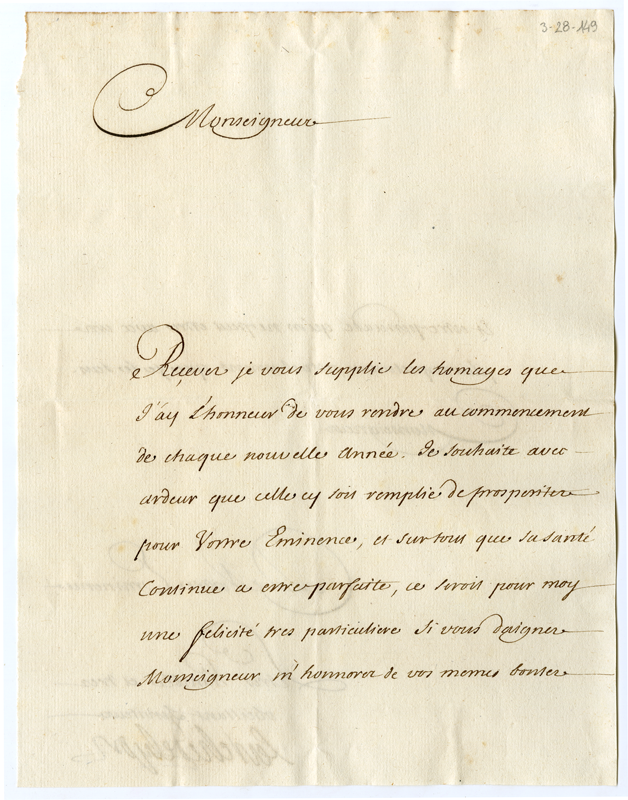 3-28-149
Monseigneur
Reçever je vous supplie les homages que
J'ay L'honneur de vous rendre au commencement
de chaque nouvelle Année. Je souhaite avec
ardeur que celle cy soit remplie de prosperitez
pour Vostre Eminence, et surtout que sa santé
Continue a estre parfaite, ce seroit pour moy
une felicité tres particuliere si vous daignez
Monseigneur m'honnorer de vos memes bontez